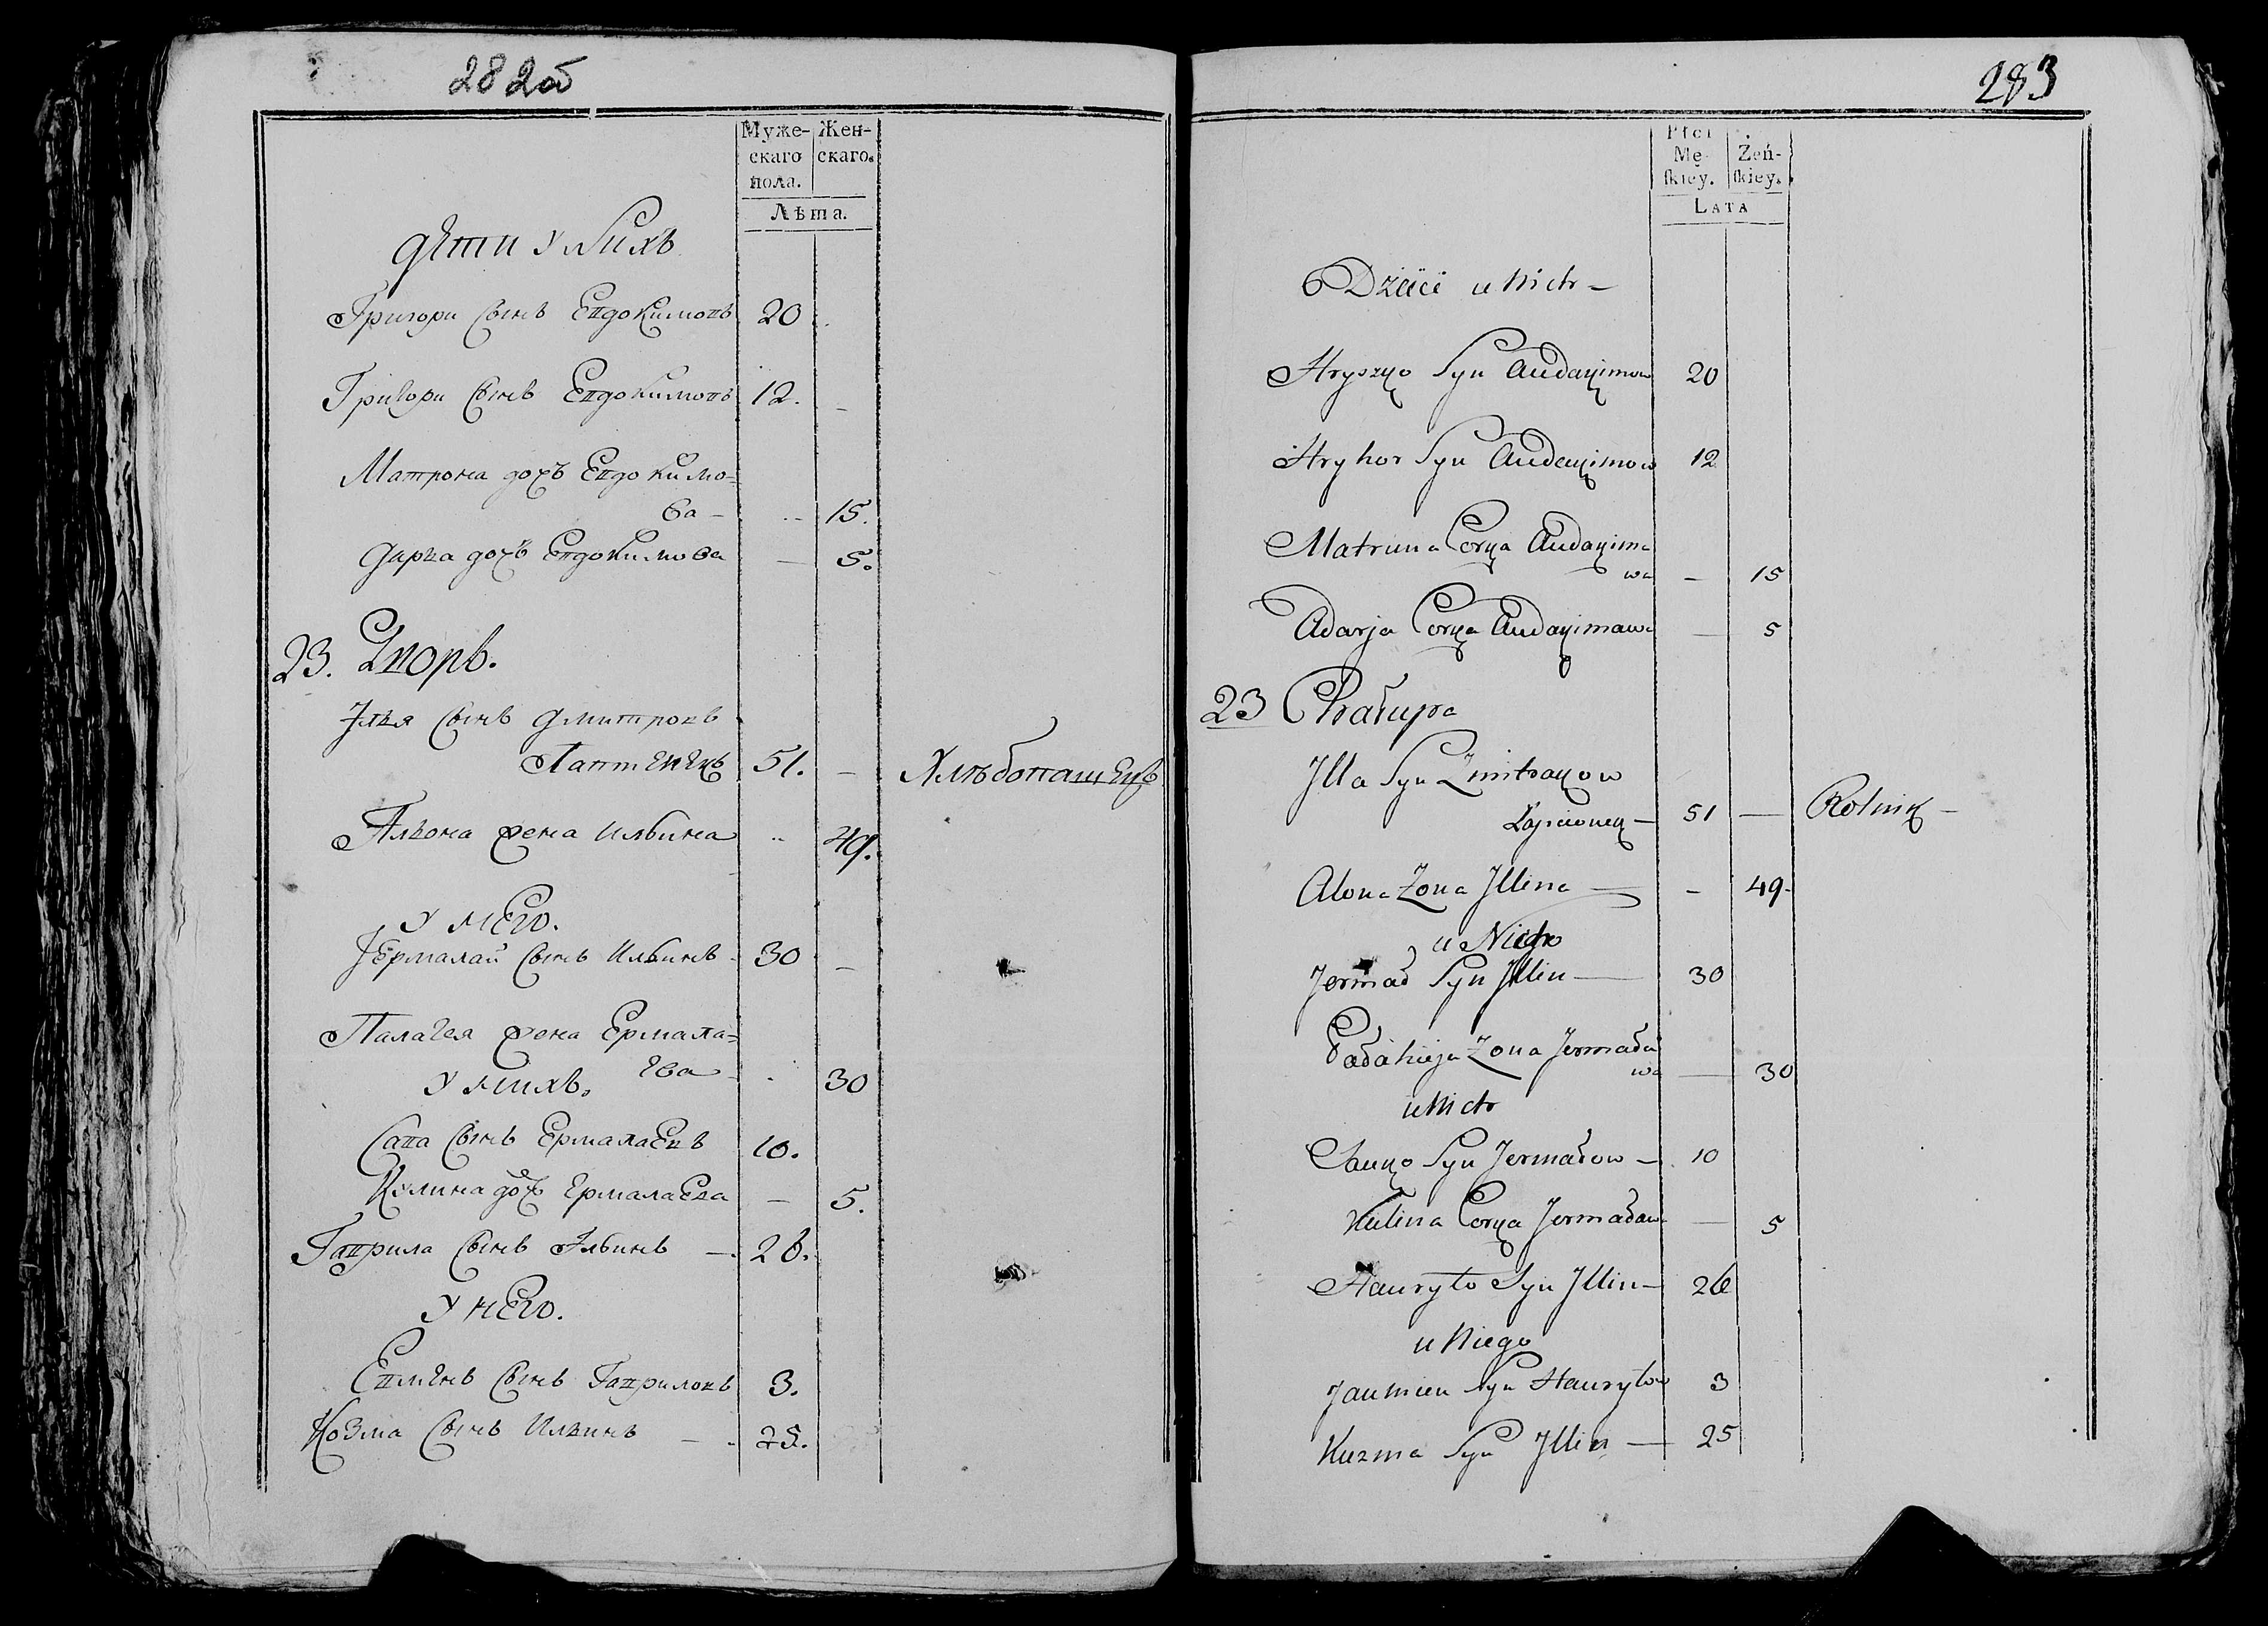 282об
Муже- Жен-
скаго скаго.
пола.
Лѣта.
дети у нихъ
Григори сынъ Евдокимовъ 20
Григори сынъ Евдокимовъ 12. –
Матрона дочъ Евдокимо=
ва – -- 15.
Дарка дочъ Евдокимова — 5.
23. Дворъ.
Илья сынъ Дмитровъ
Лаптенекъ 51. – Хлѣбопашецъ
Алиона жена Ильина -- 49.
у него.
Јермалай сынъ Ильинъ 30 –
Палагея жена Ермала=
ева 30
у нихъ.
Сава сынъ Ермалаевъ 10.
Кулина дочъ Ермалаева – 5.
Гаврила сынъ Ильинъ – 26.
у него.
Евменъ сынъ Гавриловъ 3.
Козма сынъ Ильинъ – 25.
283
Płci
Mę- Żeń-
skiey. skiey.
LATA
Dzieci u Nich –
Hryszko Syn Audakimow 20
Hryhor Syn Audakimow 12
Matruna Corka Audakima
wa – 15
Adarja Corka Audakimawa — 5
23 Chałupa
Jlla Syn Zmitrakow
Łapicionek – 51 — Rolnik –
Alona Zona Jllina — – 49-
u Nich
Jermał Syn Jllin — 30
Pałahieja Zona Jermała
wa — 30
u Nich
Sauko Syn Jermałow – 10
Kulina Corka Jermaława — 5
Hauryło Syn Jllin – 26
u Niego
Jaumien Syn Hauryłow 3
Kuzma Syn Jllin — 25